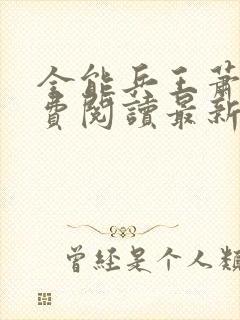 全能兵王萧
費閱讀最新
曾经是个人類